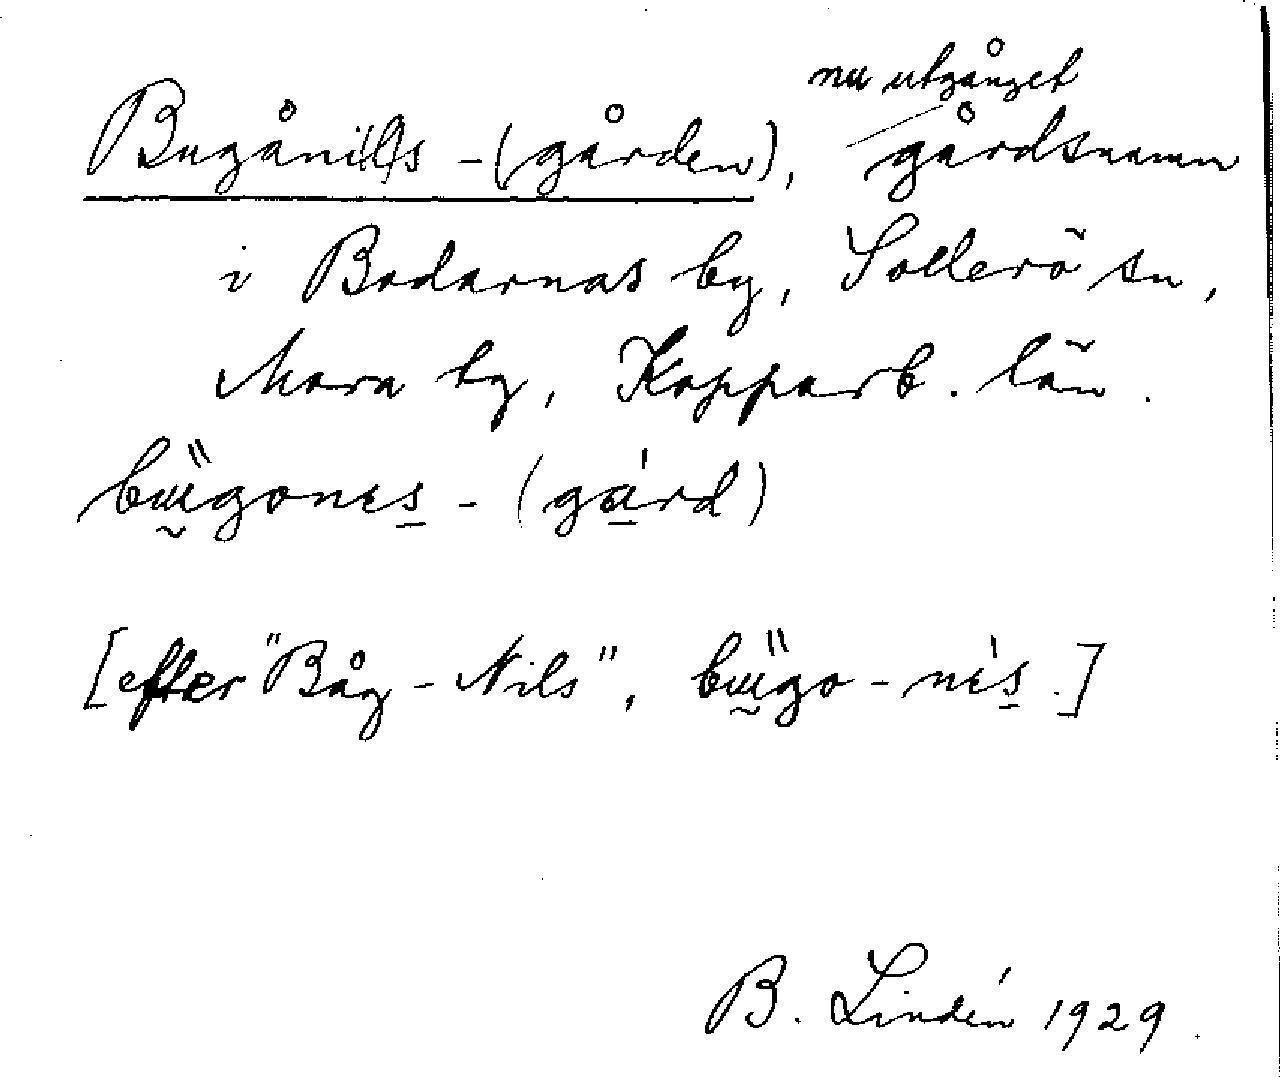 nu utgånget
Bugånils-(gården), gårdsnamn
i Bodarnas by, Sollerö sn,
Mora tg, Kopparb. län.
bɯ̰̎gones̲ - (gá̲rd)
[efter "Båg-Nils", bɯ̰̎go-nís̲.]
B. Lindén 1929.